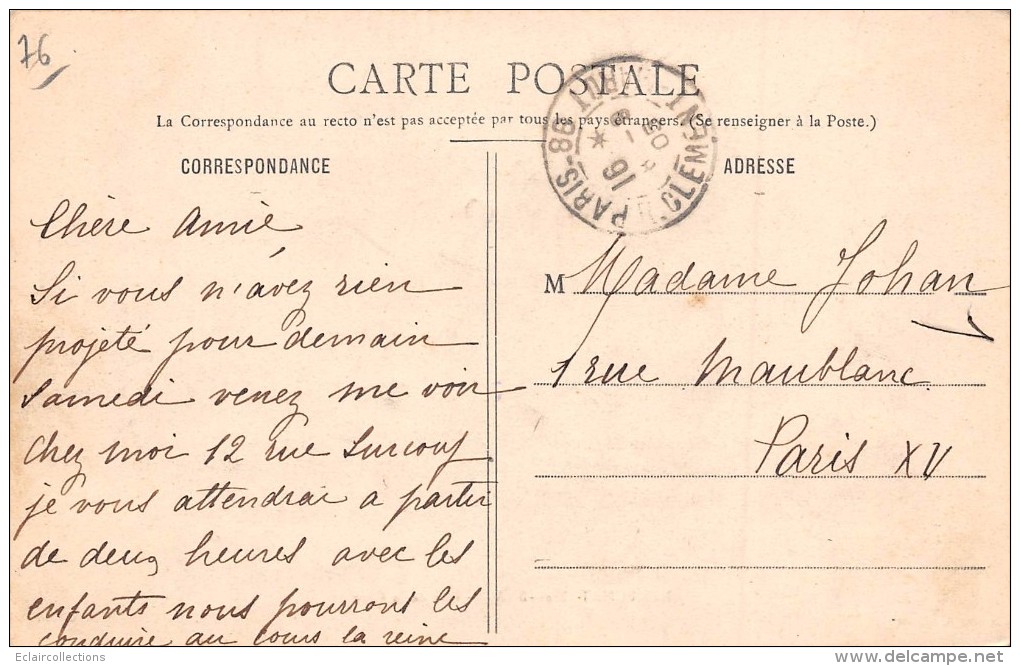 76
CARTE POSTALE
La Correspondance au recto n'est pas acceptée par tous les pays étrangers. (Se renseigner à la Poste.)
CORRESPONDANCE
Chère Amie
Si vous n'avez rien
projeté pour demain
Samedi venez me voir
chez moi 12 rue Surcouf
je vous attendrai a partir
de deux heures avec les
enfants nous pourrons les
conduire au cours la reine
ADRESSE
M Madame Johan
1 rue Maublanc
Paris XV
PARIS-88
16
CLEM
Eclaircollections
delcampe.net